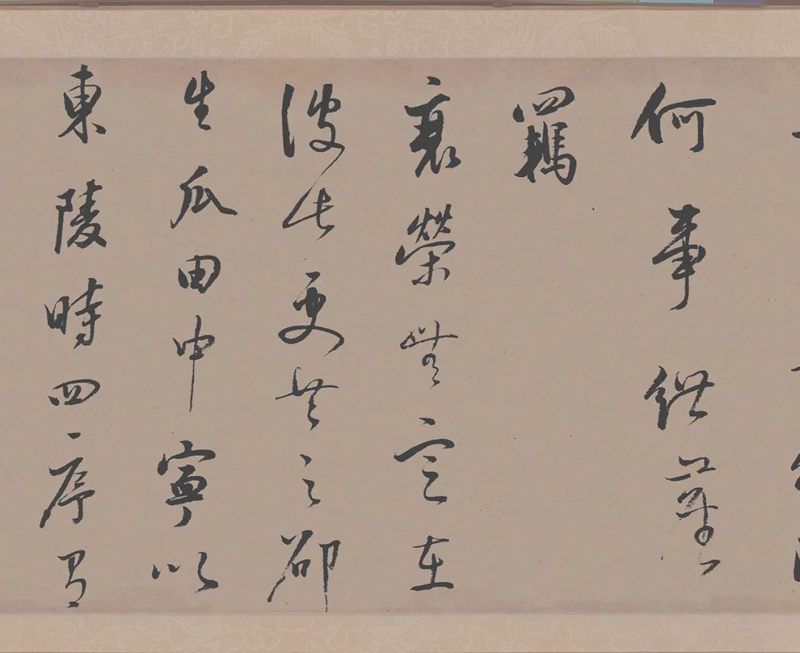 何事紲塵
羈
衰榮無定在
彼此更共之邵
生瓜田中寧似
東陵時四序